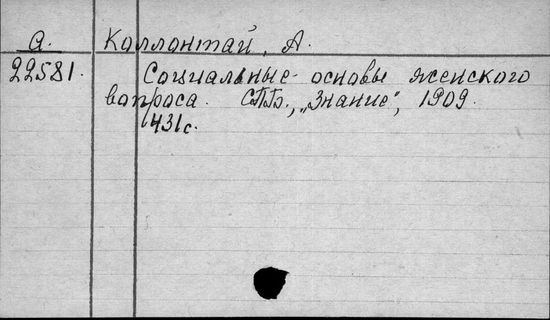 а. Коллонтай, А.
22581. Социальные основы женского
вопроса. СПб., "Знание", 1909.
431с.